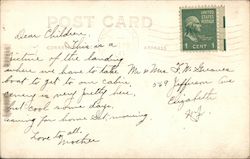 POST CARD
Dear Children,
This is a
picture of the landing
where we have to take
boat to get to our cabin,
scenery is very pretty here,
but cool some days,
leaving for home Sat. morning.
Love to all.
Mother
UNITED STATES POSTAGE
1 CENT 1
Mr & Mrs F. W.
569 Jefferson Ave
Elizabeth
N.J.